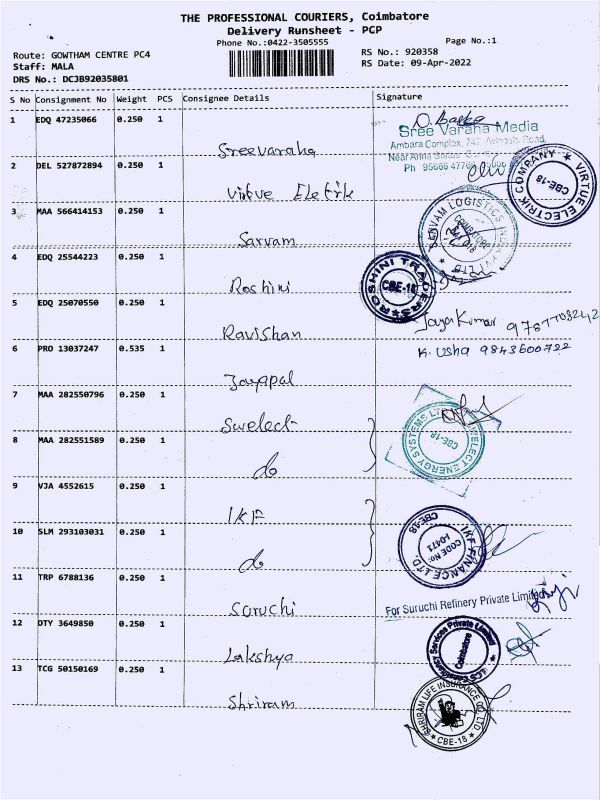 THE PROFESSIONAL COURIERS, Coimbatore
Delivery Runsheet - PCP
Phone No.:0422-3505555
Page No.:1
Route: GOWTHAM CENTRE PC4
RS No.: 920358
Staff: MALA
RS Date: 09-Apr-2022
DRS No.: DCJB92035801
S No Consignment No Weight PCS Consignee Details Signature
1 EDQ 47235066 0.250 1
Sreevaraha
Sree Varaha Media
Ambara Complex, 742, Avinashi Road,
2 DEL 527872894 0.250 1
Virtue Eletrik
VIRTUE ELECTRIK COMPANY
CBE-18
3 MAA 566414153 0.250 1
Sarvam
SARVAM LOGISTICS
COIMBATORE
4 EDQ 25544223 0.250 1
Roshini
ROSHINI TRADERS
CBE-18
5 EDQ 25070550 0.250 1
Ravishan
Jaya Kumar
6 PRO 13037247 0.535 1
K. Usha 9843600722
Jayapal
7 MAA 282550796 0.250 1
Swelect
8 MAA 282551589 0.250 1
do
SWELECT ENERGY SYSTEMS
CBE-18
9 VJA 4552615 0.250 1
IKF
10 SLM 293103031 0.250 1
do
IKF FINANCE LTD.
CODE No:
I-0471
CBE-18
11 TRP 6788136 0.250 1
Suruchi
For Suruchi Refinery Private Limited
12 DTY 3649850 0.250 1
Lakshya
Services Private Limited
Coimbatore
13 TCG 50150169 0.250 1
Shriram
SHRIRAM LIFE INSURANCE CO LTD
CBE-18